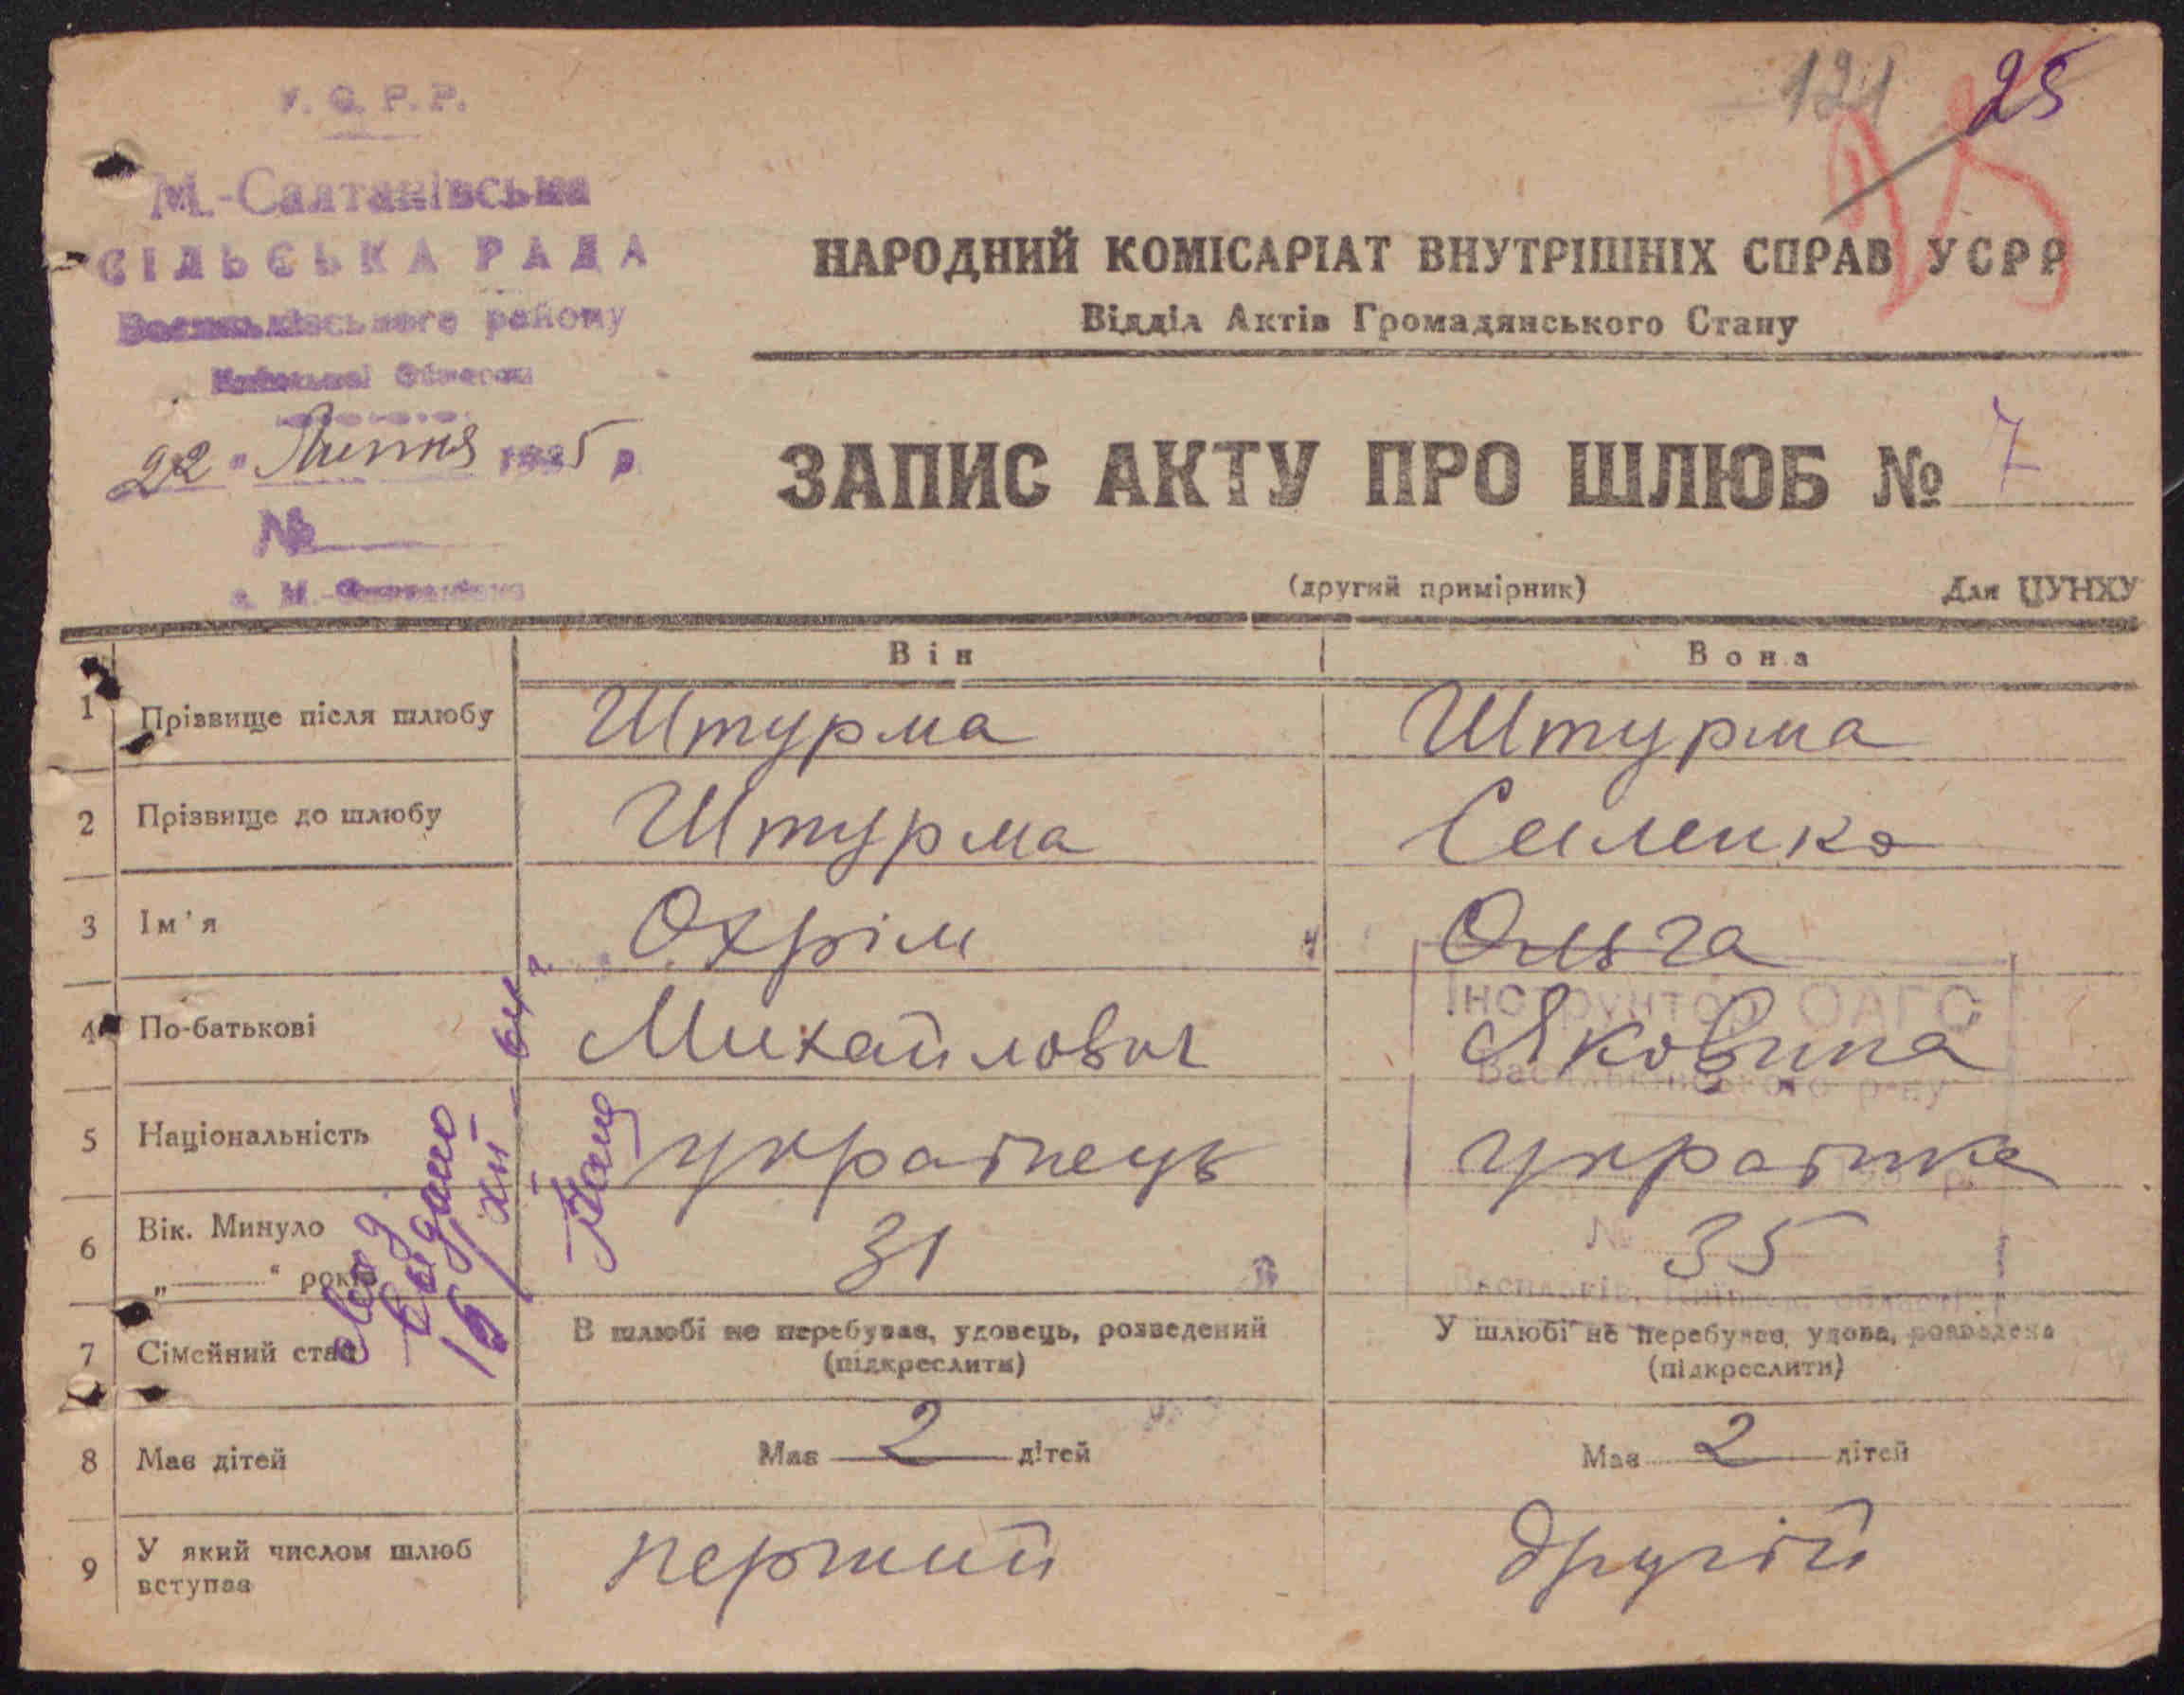 У. С. Р. Р.
121 25
25
М.-Салтанівська
СІЛЬСЬКА РАДА
Васильківського району
Київської Области
22 " Липня 1935 р.
№
с. М.-Салтанівка
НАРОДНИЙ КОМІСАРІАТ ВНУТРІШНІХ СПРАВ УСРР
Відділ Актів Громадянського Стану
ЗАПИС АКТУ ПРО ШЛЮБ № 7
(другий примірник) Для ЦУНХУ
Він Вона
1 Прізвище після шлюбу Штурма Штурма
2 Прізвище до шлюбу Штурма Семенко
3 Ім'я Охрім Ольга
4 По-батькові Михайлович Яковина
5 Національність українець українка
6 Вік. Минуло 31 35
„——“ років
7 Сімейний стан В шлюбі не перебував, удовець, розведений У шлюбі не перебувала, удова, розведена
(підкреслити) (підкреслити)
8 Має дітей Має 2 дітей Має 2 дітей
9 У який числом шлюб перший другій
вступає
видано
16/XII-
Інструктор ОАГС
Васильківського р-ну
№
Васильків, Київськ. області